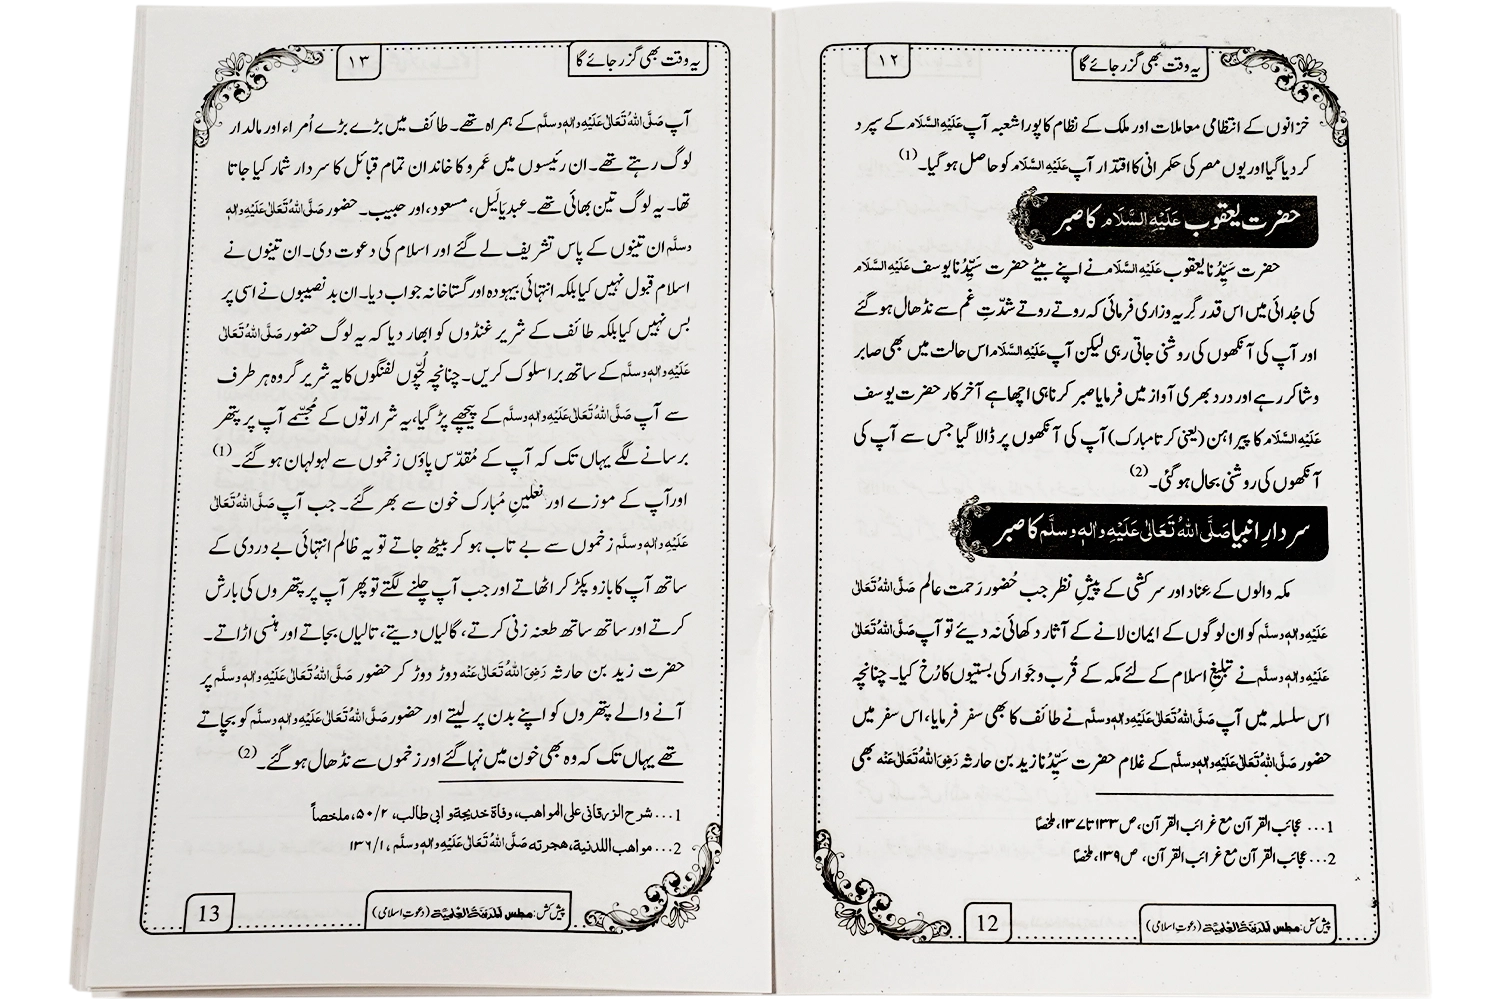 یہ وقت بھی گزر جائے گا
۱۲
خزانوں کے انتظامی معاملات اور ملک کے نظام کا پورا شعبہ آپ عَلَیْہِ السَّلَام کے سپرد
کر دیا گیا اور یوں مصر کی حکمرانی کا اقتدار آپ عَلَیْہِ السَّلَام کو حاصل ہو گیا۔ (1)
حضرت یعقوب عَلَیْہِ السَّلَام کا صبر
حضرت سَیِّدُنا یعقوب عَلَیْہِ السَّلَام نے اپنے بیٹے حضرت سَیِّدُنا یوسف عَلَیْہِ السَّلَام
کی جُدائی میں اس قدر گِریہ وزاری فرمائی کہ روتے روتے شدّتِ غم سے نڈھال ہو گئے
اور آپ کی آنکھوں کی روشنی جاتی رہی لیکن آپ عَلَیْہِ السَّلَام اس حالت میں بھی صابر
وشاکر رہے اور درد بھری آواز میں فرمایا صبر کرنا ہی اچھا ہے آخر کار حضرت یوسف
عَلَیْہِ السَّلَام کا پیراہن (یعنی کرتا مبارک) آپ کی آنکھوں پر ڈالا گیا جس سے آپ کی
آنکھوں کی روشنی بحال ہو گئی۔ (2)
سردارِ انبیا صَلَّی اللہُ تَعَالٰی عَلَیْہِ واٰلِہٖ وسلَّم کا صبر
مکہ والوں کے عِناد اور سرکشی کے پیشِ نظر جب حُضور رَحمت عالم صَلَّی اللہُ تَعَالٰی
عَلَیْہِ واٰلِہٖ وسلَّم کو ان لوگوں کے ایمان لانے کے آثار دکھائی نہ دیئے تو آپ صَلَّی اللہُ تَعَالٰی
عَلَیْہِ واٰلِہٖ وسلَّم نے تبلیغِ اسلام کے لئے مکہ کے قُرب وجَوار کی بستیوں کا رُخ کیا۔ چنانچہ
اس سلسلہ میں آپ صَلَّی اللہُ تَعَالٰی عَلَیْہِ واٰلِہٖ وسلَّم نے طائف کا بھی سفر فرمایا، اس سفر میں
حضور صَلَّی اللہُ تَعَالٰی عَلَیْہِ واٰلِہٖ وسلَّم کے غلام حضرت سَیِّدُنا زید بن حارثہ رَضِیَ اللہُ تَعَالٰی عَنْہ بھی
1... عجائب القرآن مع غرائب القرآن، ص ۱۳۳ تا ۱۳۷، ملخصًا
2... عجائب القرآن مع غرائب القرآن، ص ۱۳۹، ملخصًا
پیش کش: مجلس المدینۃ العلمیۃ (دعوت اسلامی)
12
یہ وقت بھی گزر جائے گا
۱۳
آپ صَلَّی اللہُ تَعَالٰی عَلَیْہِ واٰلِہٖ وسلَّم کے ہمراہ تھے۔ طائف میں بڑے بڑے اُمراء اور مالدار
لوگ رہتے تھے۔ ان رئیسوں میں عَمرو کا خاندان تمام قبائل کا سردار شمار کیا جاتا
تھا۔ یہ لوگ تین بھائی تھے۔ عبدیَالَیل، مسعود، اور حبیب۔ حضور صَلَّی اللہُ تَعَالٰی عَلَیْہِ واٰلِہٖ
وسلَّم ان تینوں کے پاس تشریف لے گئے اور اسلام کی دعوت دی۔ ان تینوں نے
اسلام قبول نہیں کیا بلکہ انتہائی بیہودہ اور گستاخانہ جواب دیا۔ ان بدنصیبوں نے اسی پر
بس نہیں کیا بلکہ طائف کے شریر غنڈوں کو ابھار دیا کہ یہ لوگ حضور صَلَّی اللہُ تَعَالٰی
عَلَیْہِ واٰلِہٖ وسلَّم کے ساتھ براسلوک کریں۔ چنانچہ لُچّوں لفنگوں کا یہ شریر گروہ ہر طرف
سے آپ صَلَّی اللہُ تَعَالٰی عَلَیْہِ واٰلِہٖ وسلَّم کے پیچھے پڑ گیا، یہ شرارتوں کے مُجسّمے آپ پر پتھر
برسانے لگے یہاں تک کہ آپ کے مُقدّس پاؤں زخموں سے لہولہان ہو گئے۔ (1)
اور آپ کے موزے اور نعلینِ مُبارک خون سے بھر گئے۔ جب آپ صَلَّی اللہُ تَعَالٰی
عَلَیْہِ واٰلِہٖ وسلَّم زخموں سے بے تاب ہو کر بیٹھ جاتے تو یہ ظالم انتہائی بے دردی کے
ساتھ آپ کا بازو پکڑ کر اٹھاتے اور جب آپ چلنے لگتے تو پھر آپ پر پتھروں کی بارش
کرتے اور ساتھ ساتھ طعنہ زنی کرتے، گالیاں دیتے، تالیاں بجاتے اور ہنسی اڑاتے۔
حضرت زید بن حارثہ رَضِیَ اللہُ تَعَالٰی عَنْہ دوڑ دوڑ کر حضور صَلَّی اللہُ تَعَالٰی عَلَیْہِ واٰلِہٖ وسلَّم پر
آنے والے پتھروں کو اپنے بدن پر لیتے اور حضور صَلَّی اللہُ تَعَالٰی عَلَیْہِ واٰلِہٖ وسلَّم کو بچاتے
تھے یہاں تک کہ وہ بھی خون میں نہا گئے اور زخموں سے نڈھال ہو گئے۔ (2)
1... شرح الزرقانی علی المواهب، وفاۃ خدیجۃ و ابی طالب، ۲/ ۵۰، ملخصاً
2... مواهب اللدنیۃ، هجرته صَلَّی اللہُ تَعَالٰی عَلَیْہِ واٰلِہٖ وسلَّم، ۱/ ۱۳۶
پیش کش: مجلس المدینۃ العلمیۃ (دعوت اسلامی)
13